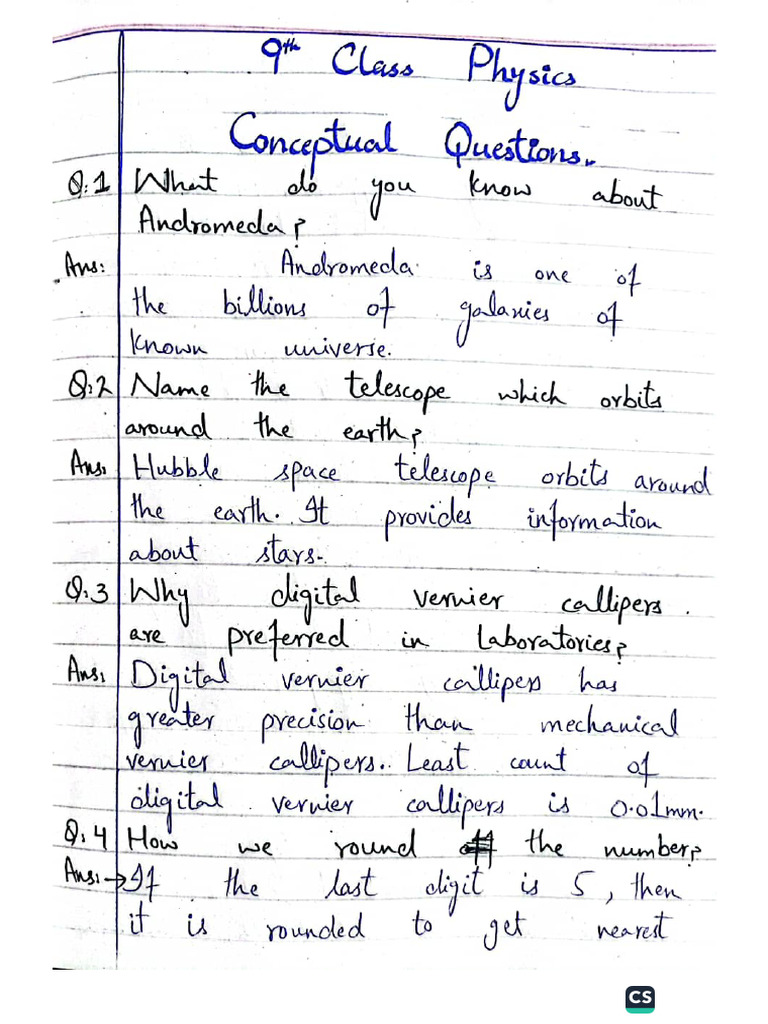 9th Class Physics
Conceptual Questions.
Q:1 What do you know about
Andromeda?
Ans: Andromeda is one of
the billions of galanies of
known universe.
Q:2 Name the telescope which orbits
around the earth?
Ans, Hubble space telescope orbits around
the earth. It provides information
about stars.
Q:3 Why digital vernier callipers.
are preferred in laboratories?
Ans, Digital vernier callipers has
greater precision than mechanical
vernier callipers. Least count of
digital vernier callipers is 0.01mm.
Q:4 How we round the number?
Ans: → If the last digit is 5, then
it is rounded to get nearest
CS